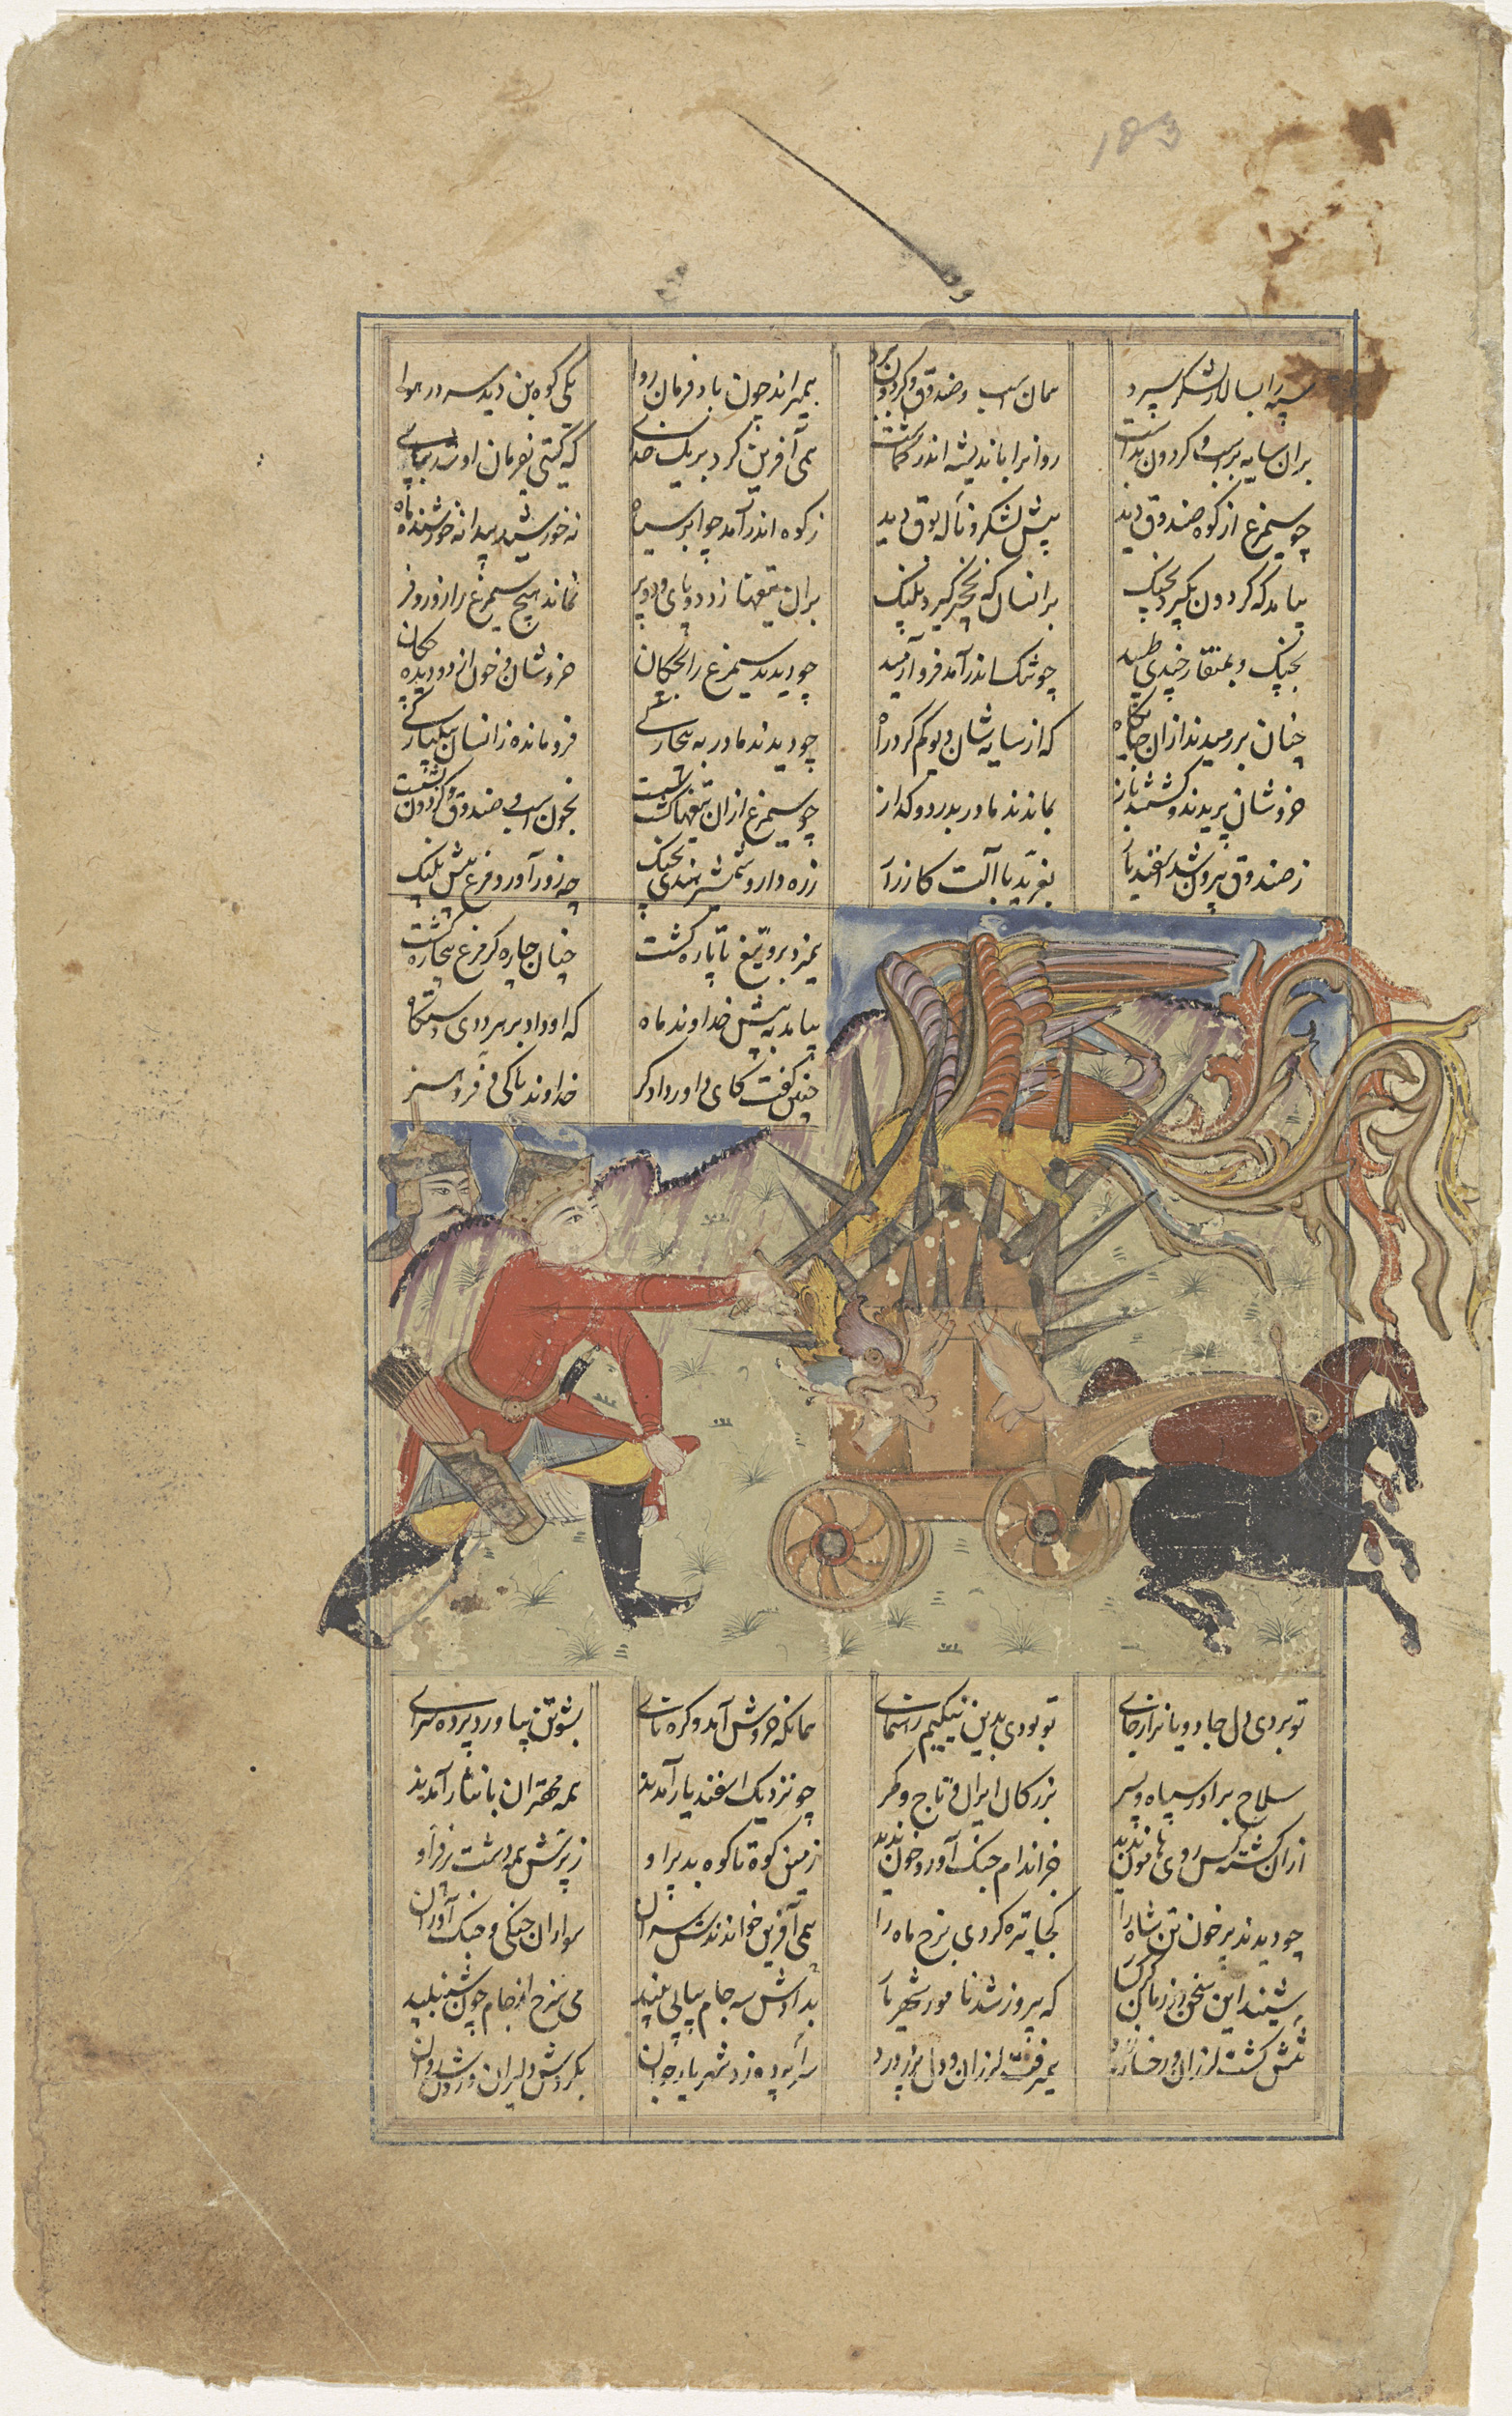 سپه را بسالار لشکر سپرد همان اسب و صندوق و گردون ببرد همیراند چون باد فرمان روا یکی کوه بن دید سر در هوا
بران سایه بر اسب و گردون بداشت روانرا باندیشه اندر گماشت همی آفرین کرد بر یک خدای که گیتی بفرمان او شد بپای
چو سیمرغ از کوه صندوق دید پسش لشکر و ناله بوق دید ز کوه اندر آمد چو ابر سیاه نه خورشید پیدا نه رخشنده ماه
بیامد که گردون بگیرد بچنگ برانسان که نخچیر گیرد پلنگ بران تیغها زد دو پای و دو پر نماند هیچ سیمرغ را زور و فر
بچنگ و بمنقار چندی طپید چو تنگ اندر آمد فرو آرمید چو دیدند سیمرغ را بچکان خروشان و خون از دو دیده چکان
چنان بر رمیدند ازان جایگاه که از سایه شان دیو گم کرد راه چو دیدند مادر به بیچارگی فرومانده زانسان بیکبارگی
خروشان پریدند و گشتند باز بماندند مادر بدرد و گداز چو سیمرغ ازان تیغها گشت سست بخون اسب و صندوق و گردون بشست
ز صندوق بیرون شد اسفندیار بغرید با آلت کارزار زره دار و شمشیر هندی بچنگ چه زور آورد مرغ پیش پلنگ
همیزد برو تیغ تا پاره گشت چنان چاره گر مرغ بیچاره گشت
بیامد به پیش خداوند ماه که او داد بر هر ددی دستگاه
چنین گفت کای داور دادگر خداوند پاکی و فر و هنر
تو بردی دل جادویانرا ز جای تو بودی بدین نیکیم رهنمای همانگه خروش آمد و کره نای پشوتن بیاورد پرده سرای
سلاح برادر سپاه و پسر بزرگان ایران و تاج و کمر چو نزدیک اسفندیار آمدند همه مهتران با نثار آمدند
ازان کشته کس روی هامون ندید جز اندام جنگ آور و خون ندید زمین کوه تا کوه بد پر او ز پرش همه دشت پر فر او
چو دیدند پر خون تن شاه را کجا تیره کردی برخ ماه را همی آفرین خواندندش سران سواران جنگی و جنگ آوران
شنید این سخن در زمان گرگسار که پیروز شد نامور شهریار بدادش سه جام پیاپی نبید می سرخ از جام چون شنبلید
تنش گشت لرزان و رخساره زرد همیرفت لرزان و دل پر ز درد سراپرده زد شهریار جوان بگردش دلیران روشن روان
183